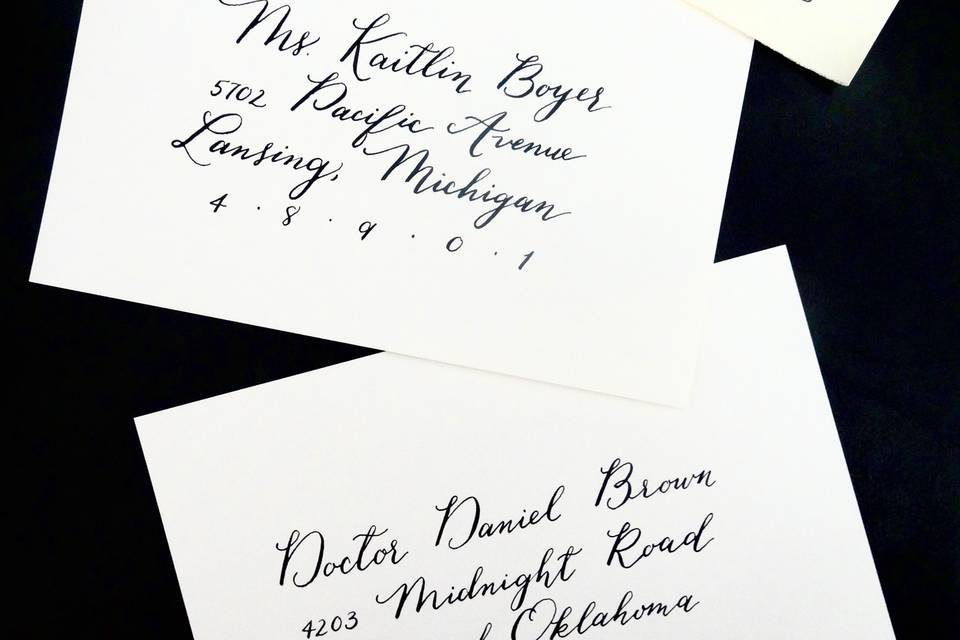 Ms. Kaitlin Boyer
5702 Pacific Avenue
Lansing, Michigan
4 · 8 · 9 · 0 · 1
Doctor Daniel Brown
4203 Midnight Road
Oklahoma